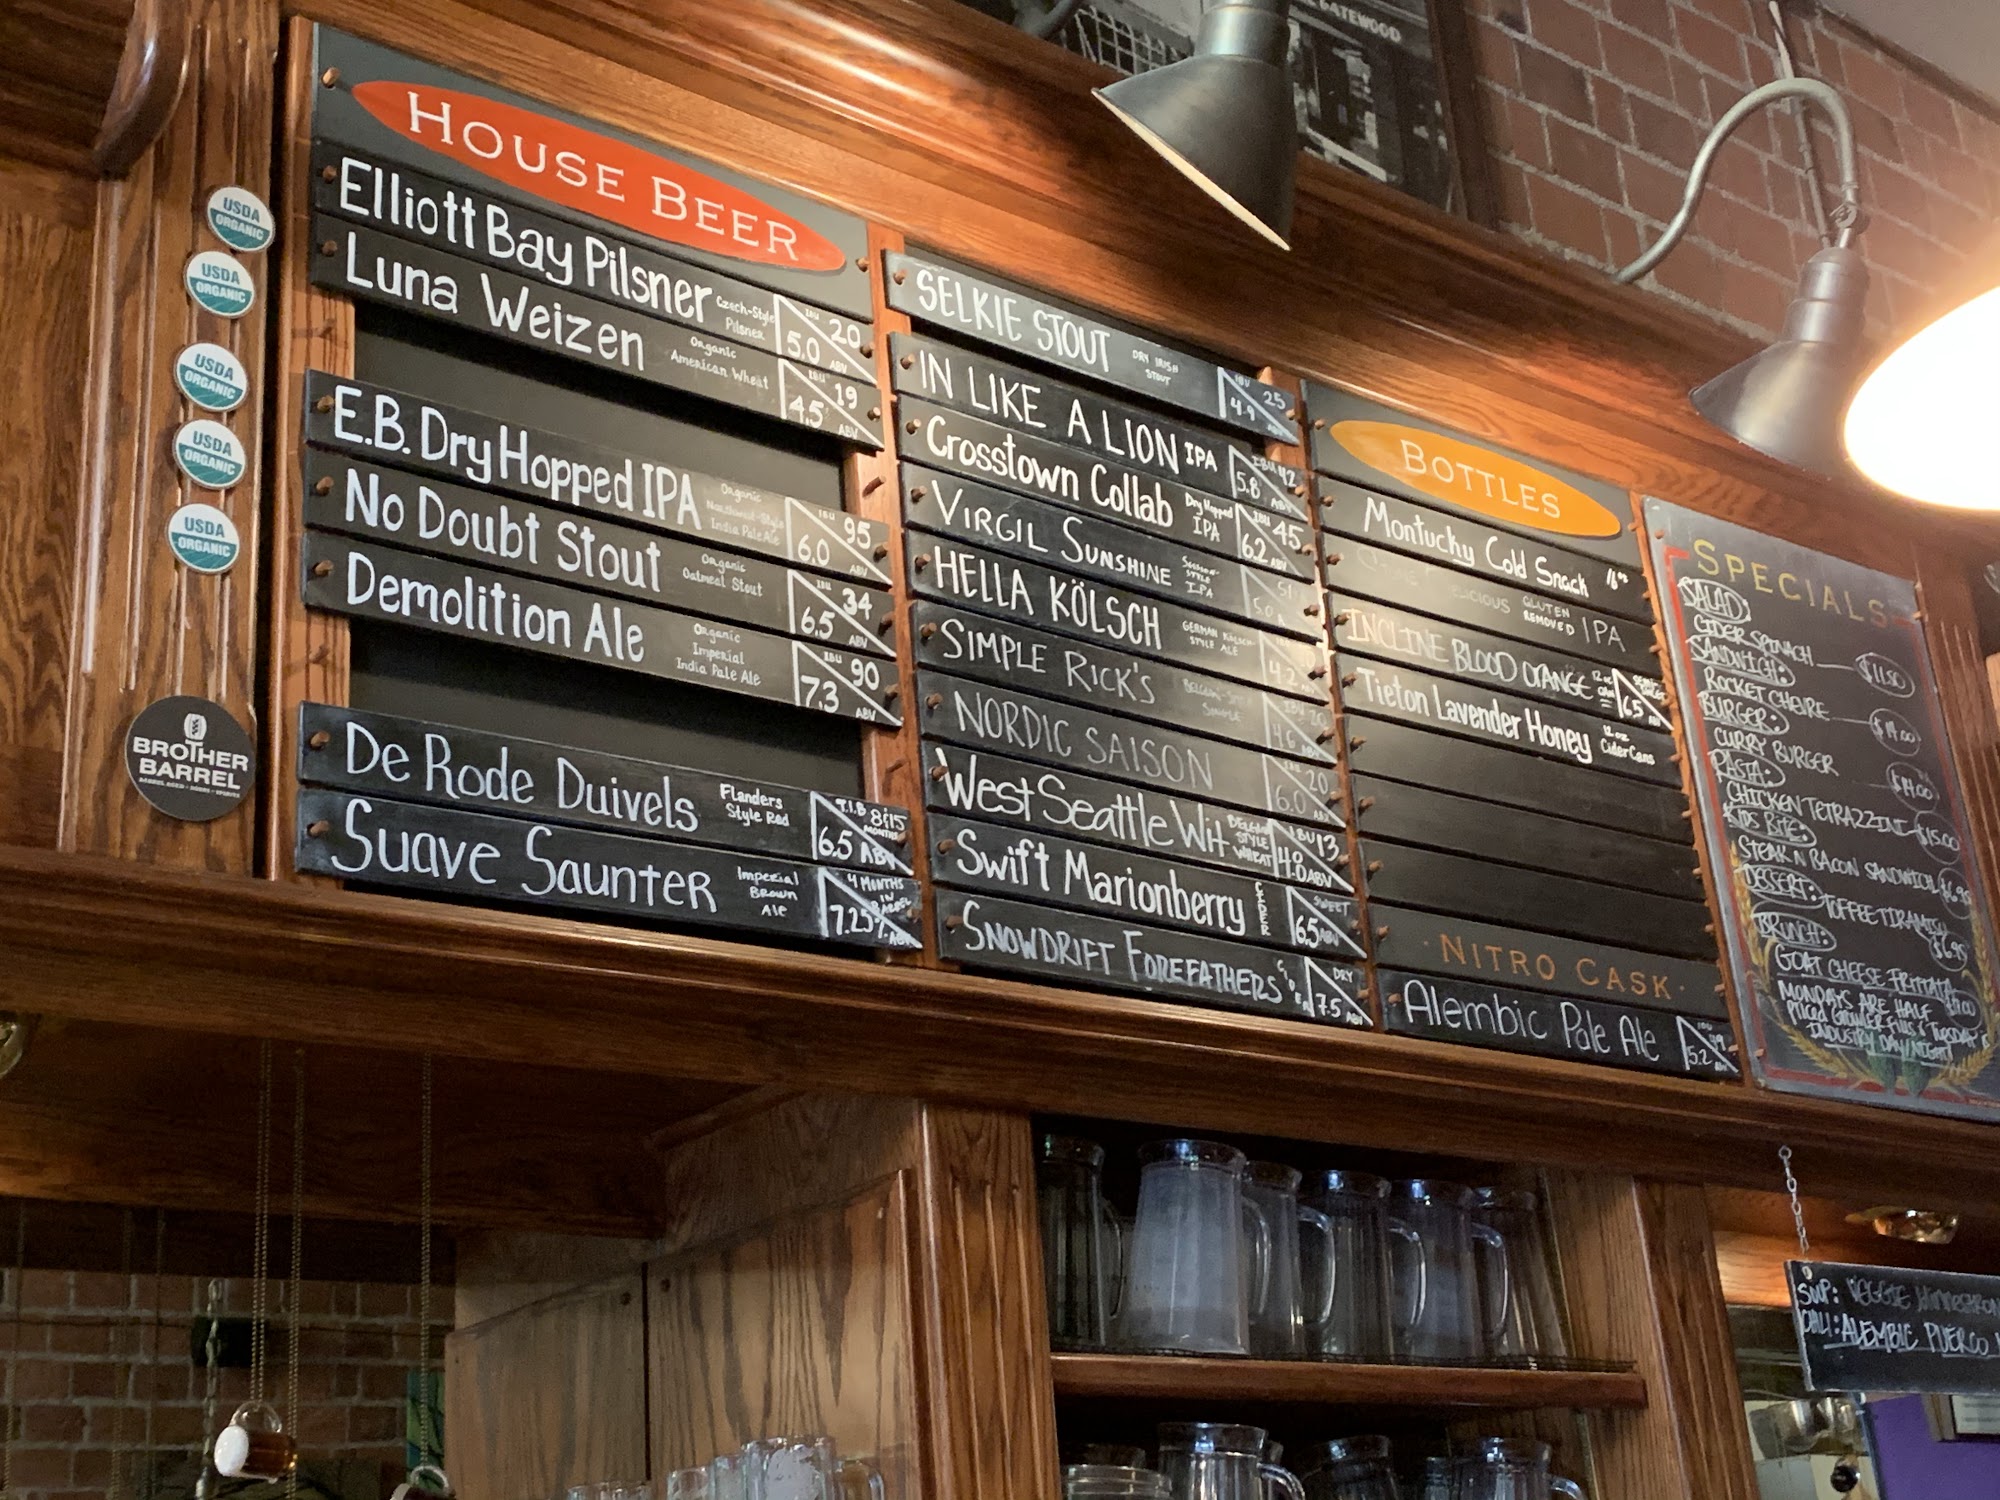 GATEWOOD
HOUSE BEER
Elliott Bay Pilsner Czech-Style Pilsner IBU 20 5.0 ABV
Luna Weizen Organic American Wheat IBU 19 4.5 ABV
E.B. Dry Hopped IPA Organic Northwest-Style India Pale Ale IBU 95 6.0 ABV
No Doubt Stout Organic Oatmeal Stout IBU 34 6.5 ABV
Demolition Ale Organic Imperial India Pale Ale IBU 90 7.3 ABV
De Rode Duivels Flanders Style Red T.I.B 8&15 MONTHS 6.5 ABV
Suave Saunter Imperial Brown Ale 4 MONTHS IN BARREL 7.25% ABV
USDA
ORGANIC
USDA
ORGANIC
USDA
ORGANIC
USDA
ORGANIC
USDA
ORGANIC
BROTHER
BARREL
SELKIE STOUT DRY IRISH STOUT IBU 25 4.9
IN LIKE A LION IPA IBU 42 5.8 ABV
Crosstown Collab Dry Hopped IPA IBU 45 6.2 ABV
VIRGIL SUNSHINE SESSION-STYLE IPA 51 5.0
HELLA KÖLSCH GERMAN KÖLSCH-STYLE ALE 4.2 ABV
SIMPLE RICK'S BELGIAN-STYLE SINGLE IBU 20 4.6 ABV
NORDIC SAISON IBU 20 6.0 ABV
West Seattle Wit BELGIAN STYLE WHEAT IBU 13 4.8 ABV
Swift Marionberry CIDER SWEET 6.5 ABV
SNOWDRIFT FOREFATHERS CIDER DRY 7.5 ABV
BOTTLES
Montucky Cold Snack 16oz
DELICIOUS GLUTEN REMOVED IPA
INCLINE BLOOD ORANGE 12 oz CAN SEMI-SWEET 6.5 ABV
Tieton Lavender Honey 12 oz Cider Cans
· NITRO CASK ·
Alembic Pale Ale IBU 39 5.2 ABV
SPECIALS
SALAD:
CIDER SPINACH $11.50
SANDWICH:
ROCKET CHEVRE $14.00
BURGER:
CURRY BURGER $14.00
PASTA:
CHICKEN TETRAZZINI $15.00
KIDS BITE:
STEAK N BACON SANDWICH $6.95
DESSERT:
TOFFEE TIRAMISU $6.95
BRUNCH:
GOAT CHEESE FRITTATA
MONDAYS ARE HALF
PRICED GROWLER FILLS & TUESDAY IS
INDUSTRY DAY/NIGHT
SOUP: VEGGIE
CHILI: ALEMBIC PUERCO